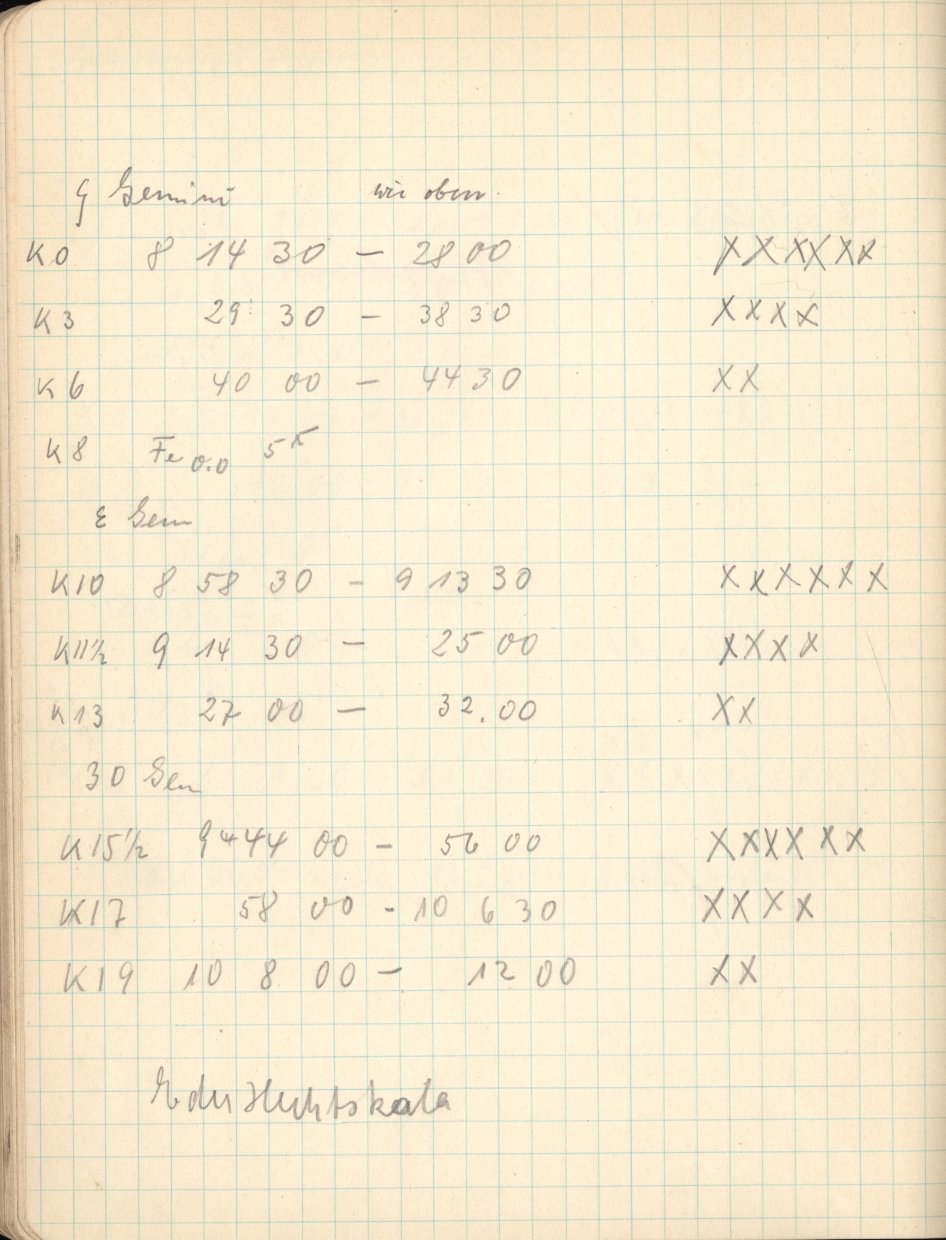 ζ Gemini wie oben.
K0 8 14 30 — 28 00 X X X X X X
K3 29 30 — 38 30 X X X X
K6 40 00 — 44 30 X X
K8 Fe 0.0 5
ε Gem
K10 8 58 30 — 9 13 30 X X X X X X
K11½ 9 14 30 — 25 00 X X X X
K13 27 00 — 32.00 X X
30 Gem
K15½ 9 44 00 — 56 00 X X X X X X
K17 58 00 - 10 6 30 X X X X
K19 10 8 00 — 12 00 X X